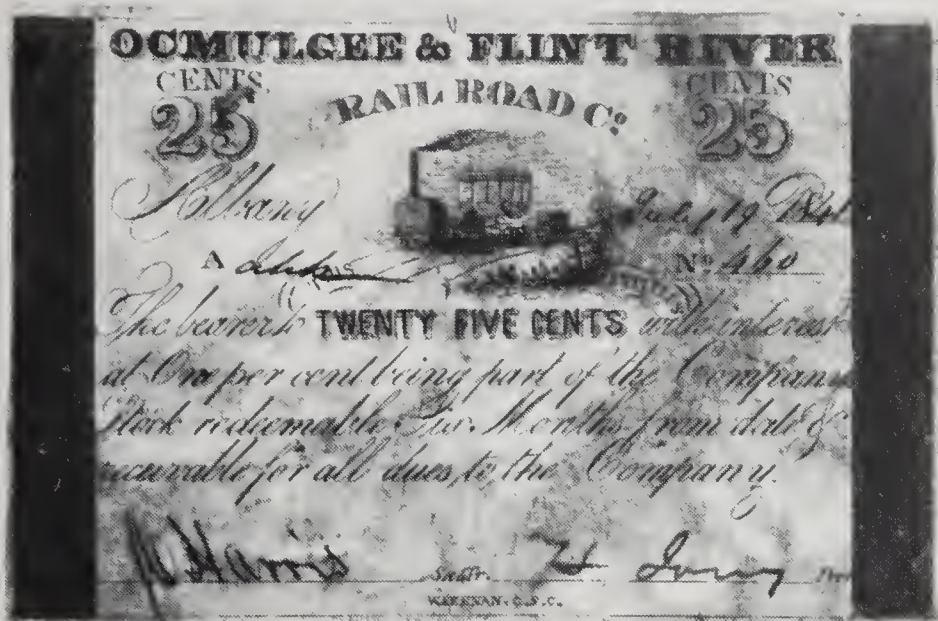 OCMULGEE & FLINT RIVER
CENTS CENTS
RAIL ROAD Co
25 25
Albany July 19 1841
A No 460
The bearer is TWENTY FIVE CENTS with interest
at One per cent being part of the Companies
Stock redeemable Two Months from date &
receivable for all dues to the Company.
Harris
KEENAN. C.S.C.